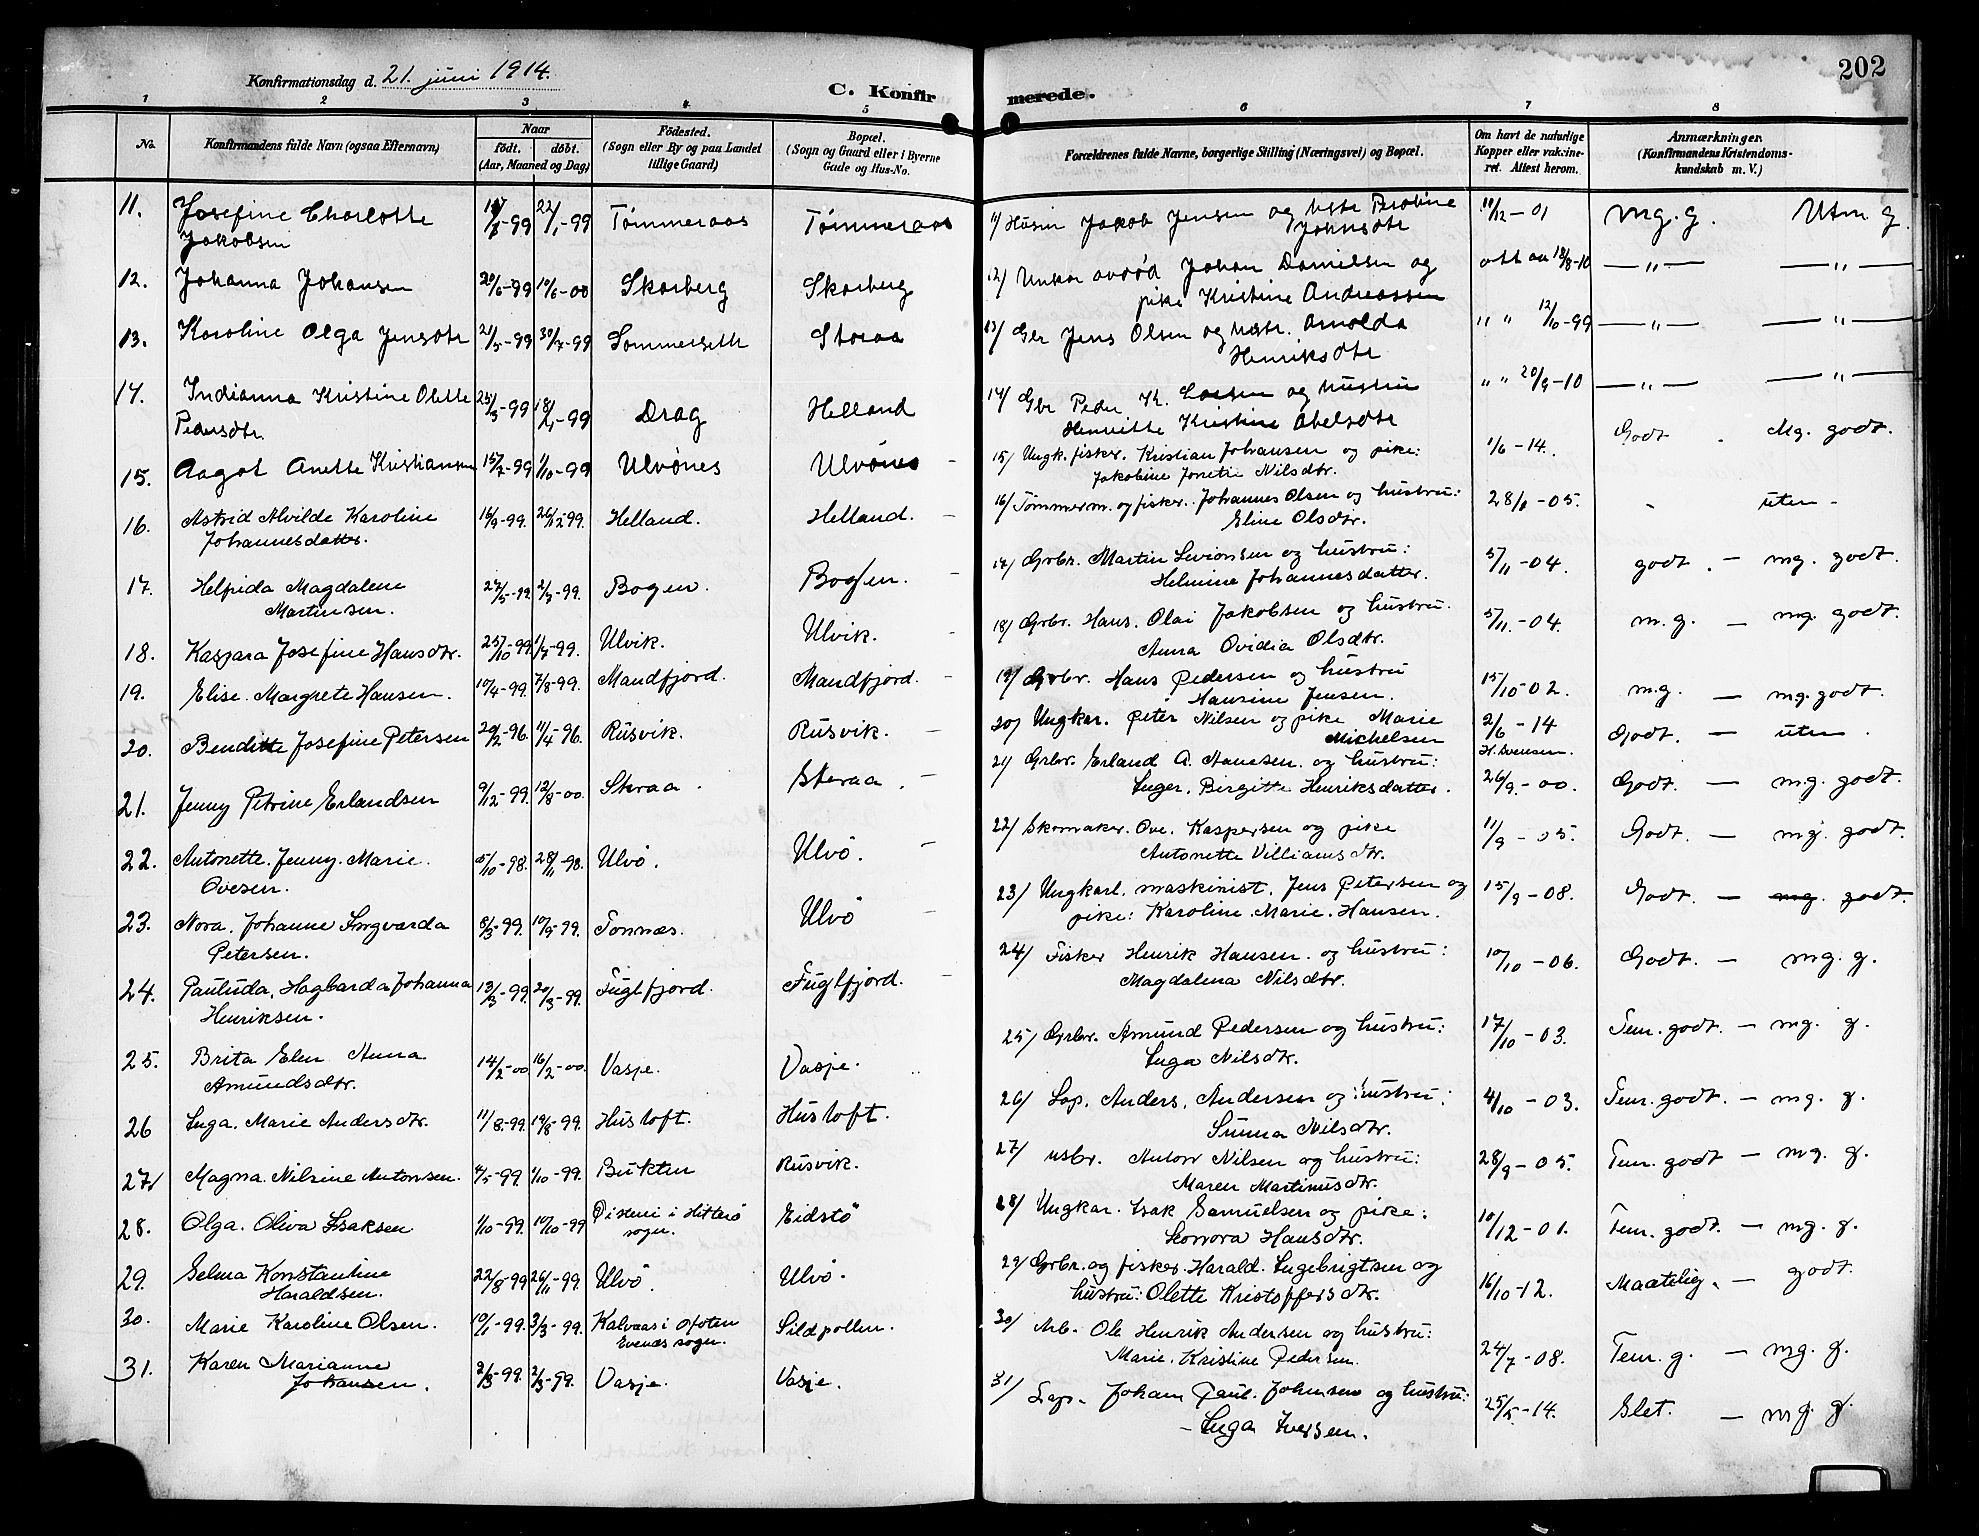 202
Konfirmationsdag d. 21. juni 1914.
C. Konfirmerede.
1 2 3 4 5 6 7 8
No.
Konfirmandens fulde Navn (ogsaa Efternavn)
Naar
født. døbt.
(Aar, Maaned og Dag)
Fødested.
(Sogn eller By og paa Landet
tillige Gaard)
Bopæl.
(Sogn og Gaard eller i Byerne
Gade og Hus-No.
Forældrenes fulde Navne, borgerlige Stilling (Næringsvei) og Bopæl.
Om havt de naturlige
Kopper eller vakcine-
ret. Attest herom.
Anmærkninger.
(Konfirmandens Kristendoms-
kundskab m. V.)
11. Josefine Charlotte 22/1-99 Tømmeraas Tømmeraas 11/ Jakob Jensen og 11/12-01 mg. g. Utm g.
Jakobsen Johnsdtr
12. Johanna Johansen 20/6-99 10/6-00 Skarberg Skarberg 12/ Johan Danielsen og att aa 18/8-10 —"— —"—
pike Kristine Andreassen
13. Karoline Olga Jensdtr 21/5-99 30/7-99 Sommerseth Storaa 13/ Gbr Jens Olsen og hstr. Arnolda " " 12/10-99 —"— —"—
Henriksdtr
14. Indianna Kristine Olette 25/3-99 Drag Helland 14/ Gbr Peder K. Larsen og hustru " " 20/9-10 —"— —"—
Pedersdtr. Henriette Kristine Abelsdtr
15. Aagot Anette Kristiansen 15/7-99 1/10-99 Ulvönes Ulvönes - 15/ Ungk. fisker. Kristian Johansen og pike: 1/6-14. Godt . Mg. godt.
Jakobine Nilsdtr.
16. Astrid Alvilde Karoline 16/9-99. 26/12-99. Helland. Helland. - 16/ Tømmerm. og fisker. Johannes Olsen og hustru: -05. - uten -
Johannesdatter. Eline Olsdtr.
17. Helfrida Magdalene 27/5-99. -99. Bogen. Bogen. - 17/ Grbr. Martin og hustru: 5/11-04. godt. - mg. godt.
Martinsen. Helmine Johannesdatter.
18. Kaspara Josefine Hansdtr. 25/10-99 1/7-99. Ulvik. Ulvik. - 18/ Grbr. Hans. Olai Jakobsen og hustru. 5/11.-04. m.g. - mg. godt.
Anna Ovidia Olsdtr.
19. Elise. Margrete Hansen. 10/4-99. 7/8-99. Mandfjord. Mandfjord. - 19/ Grbr. Hans Pedersen og hustru 15/10-02. m.g. - mg. godt.
Hansine Jensen.
20. Benditte Josefine Petersen 20/2-96. 11/4-96. Rusvik. Rusvik. - 20/ Ungkar. Peter Nilsen og pike Marie 2/6-14 Godt. - uten.
Michelsen H. Svensen.
21. Jenny Petrine Erlandsen 9/12-99. 12/8-00. Storaa. Storaa. - 21/ Grbr. Erland A. Hansen. og hustru: 26/9.-00. Godt. - mg. godt.
Inger. Birgitte Henriksdatter.
22. Antonette. Jenny. Marie. 5/10-98. 28/11-98. Ulvö. Ulvö. - 22/ Skomaker. Ove. Kaspersen og pike 11/9-05. Godt. - mg. godt.
Ovesen. Antonette Villiamsdtr.
23. Nora. Johanne Ingvarda 8/3-99. 10/9-99. Tonnæs. Ulvö - 23/ Ungkarl. maskinist. Jens Petersen og 15/9-08. Godt. - mg. godt.
Petersen. pike: Karoline. Marie. Hansen.
24. Pauluda, Hagbarda Johanna 13/3-99. 20/3-99. Fuglfjord. Fuglfjord. - 24/ Fisker Henrik Hansen. og hustru: 10/10-06. Godt. - mg. g.
Henriksen. Magdalena Nilsdtr.
25. Brita Elen Anna 14/2-00 16/2-00. Vasje. Vasje. 25/ Grbr. Amund Pedersen og hustru: 17/10-03. Tem. godt. - mg. g.
Amundsdtr. Inga Nilsdtr.
26 Inga. Marie Andersdtr. 11/8-99. 19/8-99. Husloft. Husloft. 26/ Lap. Anders. Andersen og hustru: 4/10-03. Tem. godt. - mg. g.
Sunna Nilsdtr.
27. Magna. Nilsine Antonsen. 4/5-99. 1/10-99. Bukten Rusvik. 27/ usbr. Anton Nilsen og hustru: 28/9-05. Tem. godt - mg. g.
Maren Martinusdtr.
28. Olga. Oliva Isaksen 1/10-99. 10/10-99 i Hitterö Eidstö 28/ Ungkar. Isak Samuelsen og pike: 10/12-01. Tem. godt. - mg. g.
sogn. Leonora Hansdtr.
29. Selma Konstantine 22/8-99 26/11-99. Ulvö. Ulvö. 29/ Grbr. og fisker. Harald. Ingebrigtsen og 16/10-12. Maatelig. - godt.
Haraldsen. hustru: Olette Kristoffersdtr.
30. Marie Karoline Olsen. 19/1-99. 3/3-99. Kalvaas i Ofoten Sildpollen. 30/ Arb. Ole Henrik Andersen og hustru: 24/7-08. Tem. g. - mg. g.
Evenæs sogn. Marie. Kristine Pedersen.
31. Karen Marianne 2/3-99. 2/3-99. Vasje. Vasje. 31/ Lap. Johan Paul. Johnsen og hustru: 25/5-14. Slet. - mg. g.
Johansen. - Inga Iversen.